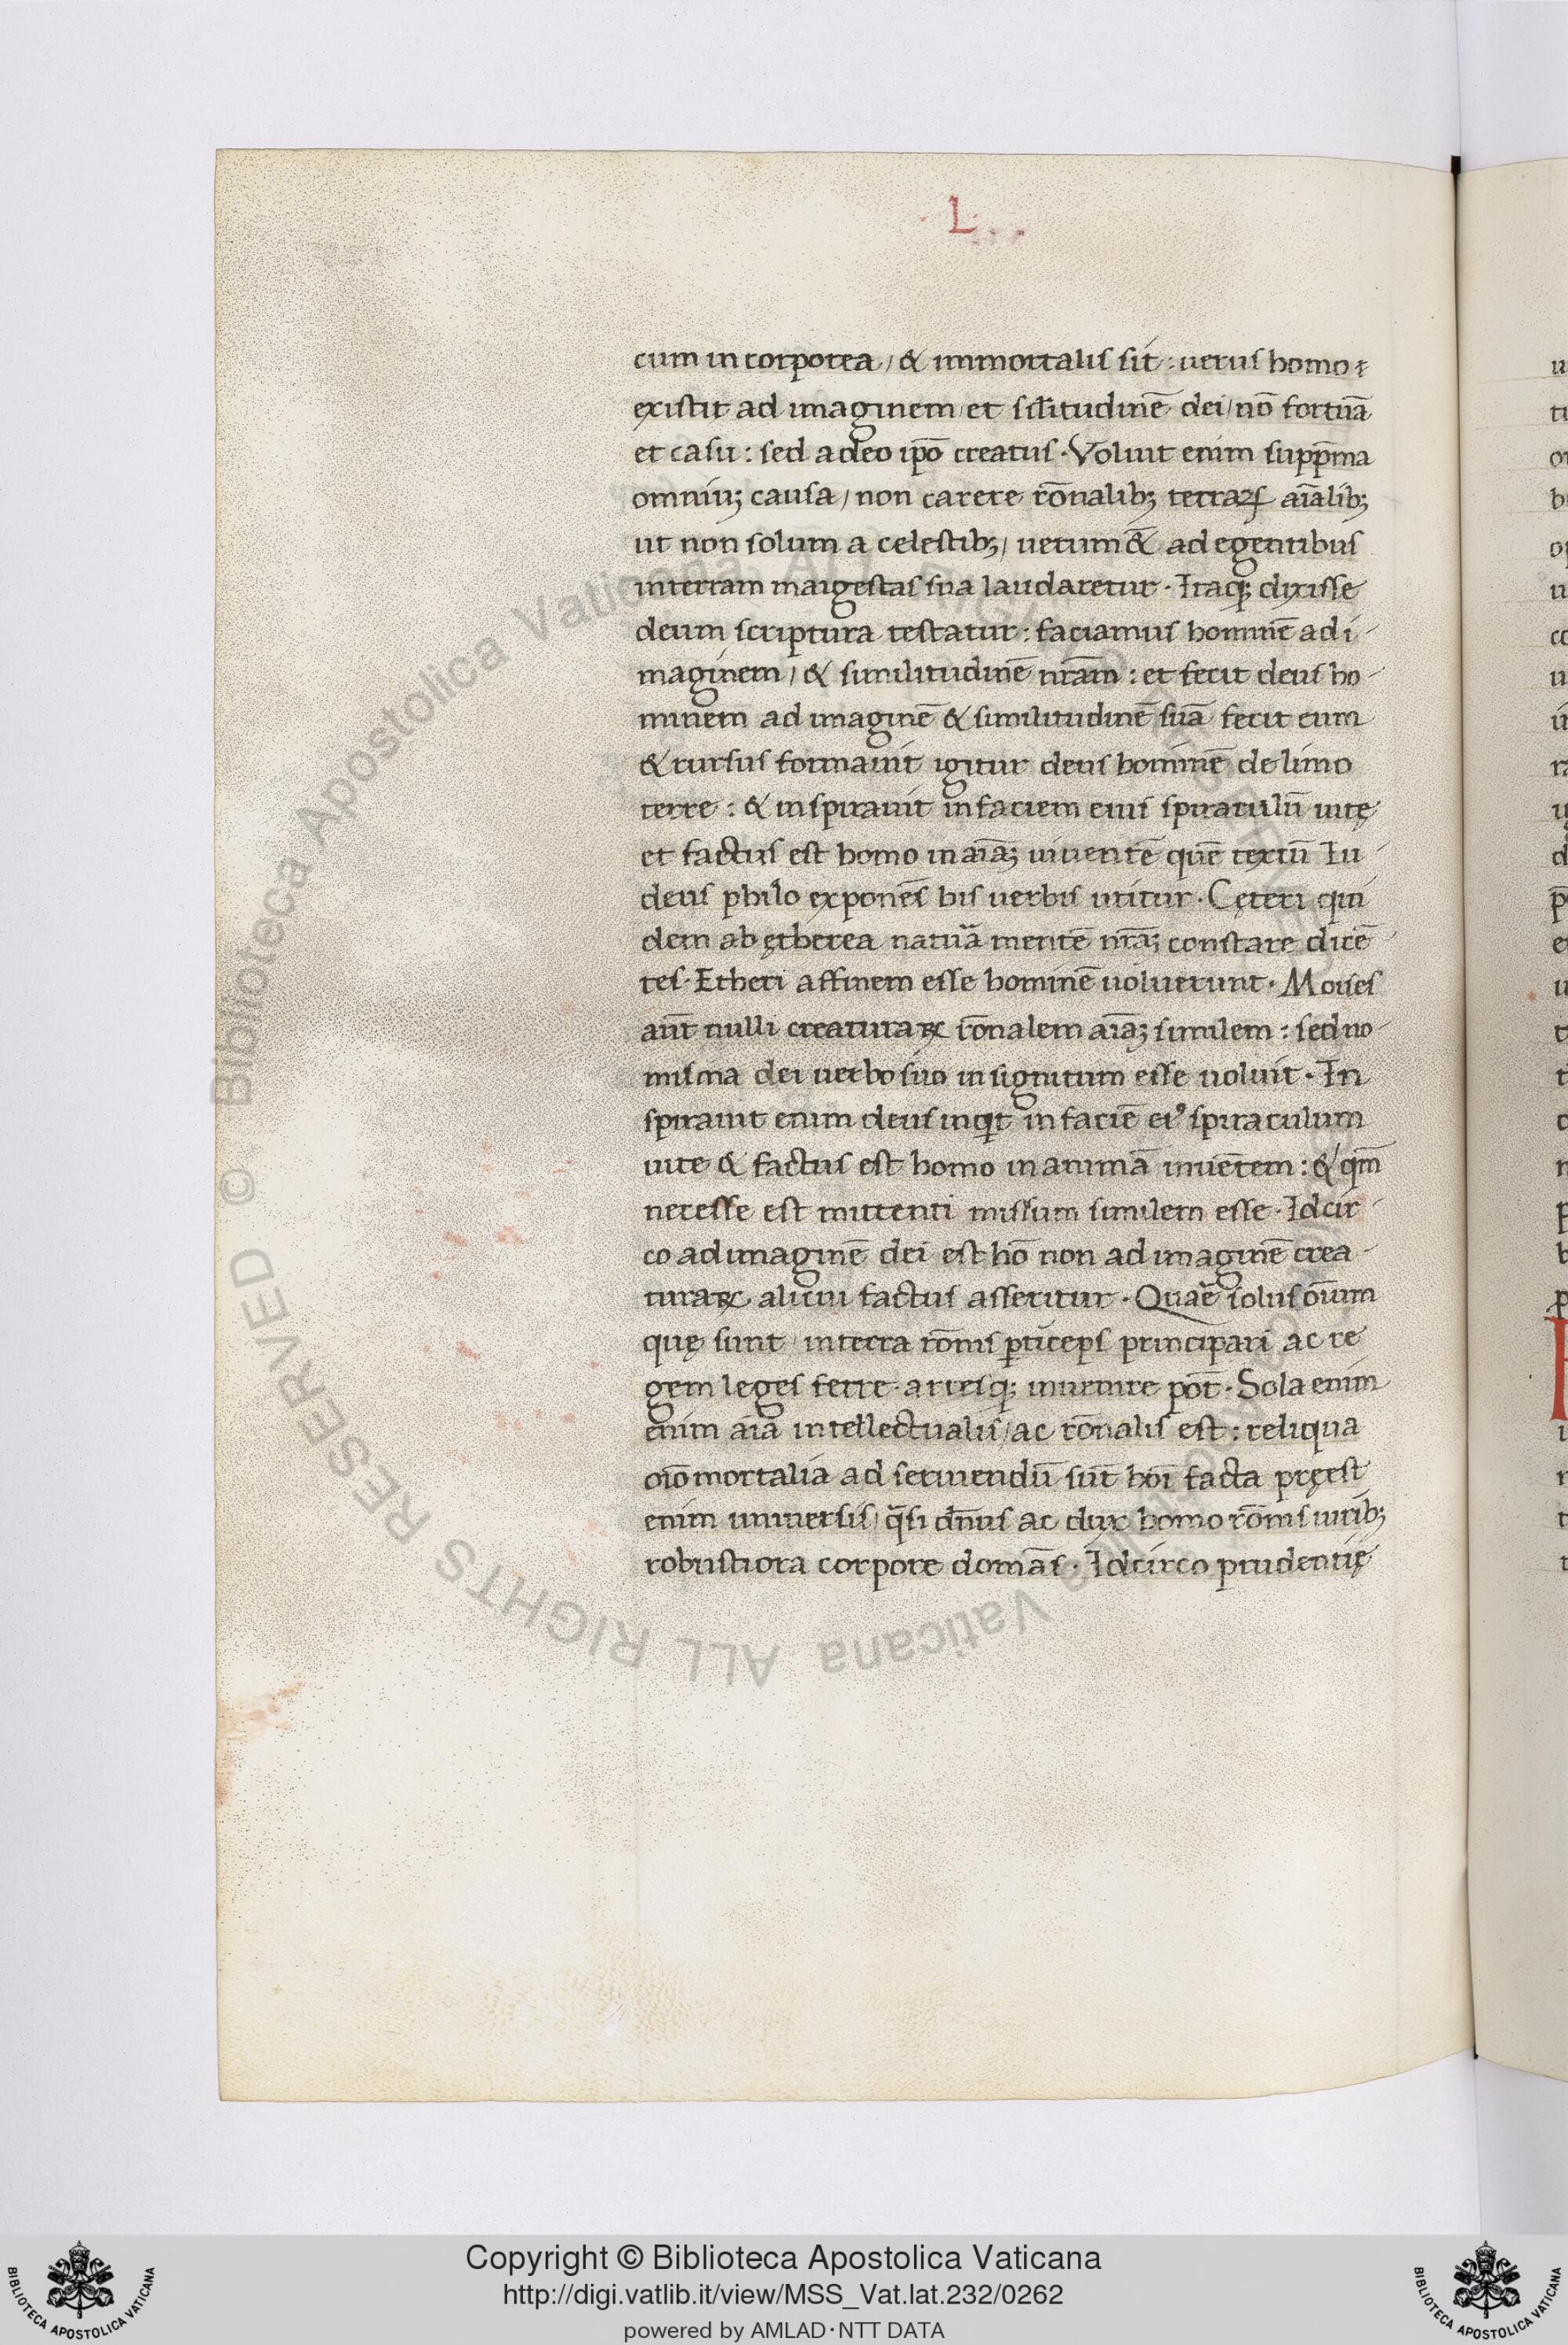 L
cum in corporea / & immortalis sit : uerus homo
existit ad imaginem et sil̄itudinē dei / nō fortuā
et casu : sed a deo ip̄o creatus · Voluit enim supp̄ma
omniuꝫ causa / non carere rōnalibꝫ terraꝝ aīalibꝫ
ut non solum a celestibꝫ / uerum & ad egentibus
interram maigestas sua laudaretur · Itaqꝫ dixisse
deum scriptura testatur : faciamus hominē ad i-
maginem / & similitudinē nr̄am : et fecit deus ho-
minem ad imaginē & similitudinē suā fecit eum
& rursus formauit igitur deus hominē de limo
terre : & inspirauit in faciem eius spiraculū uitę
et factus est homo in aīaꝫ uiuentē quē textū Iu-
deus philo exponēs his uerbis utitur · Cęteri qui
dem ab ętherea natuā mentē nr̄aꝫ constare dicē-
tes · Etheri affinem esse hominē uoluerunt · Moises
aūt nulli creaturaꝝ rōnalem aīaꝫ similem : sed no-
misma dei uerbo suo in signitum esse uoluit · In
spirauit enim deus inqt in faciē eiꝰ spiraculum
uite & factus est homo in animā inuētem : & qm̄
necesse est mittenti missum similem esse · Idcir-
co ad imaginē dei est hō non ad imaginē crea-
turaꝝ alicui factus asseritur · Quaē solus oīum
quę sunt interra rōnis pticeps principari ac re
gem leges ferre · artesqꝫ inuenire pōt · Sola enim
enim aīa intellectualis / ac rōnalis est : reliqua
oīo mortalia ad seruiendū sūt hoī facta pręest
enim uniuersis / q̄si dn̄us ac dux homo rōnis uiribꝫ
robustiora corpore domās · Idcirco prudentię
© Biblioteca Apostolica Vaticana ALL RIGHTS RESERVED
Copyright © Biblioteca Apostolica Vaticana
http://digi.vatlib.it/view/MSS_Vat.lat.232/0262
powered by AMLAD·NTT DATA
BIBLIOTECA APOSTOLICA VATICANA
BIBLIOTECA APOSTOLICA VATICANA